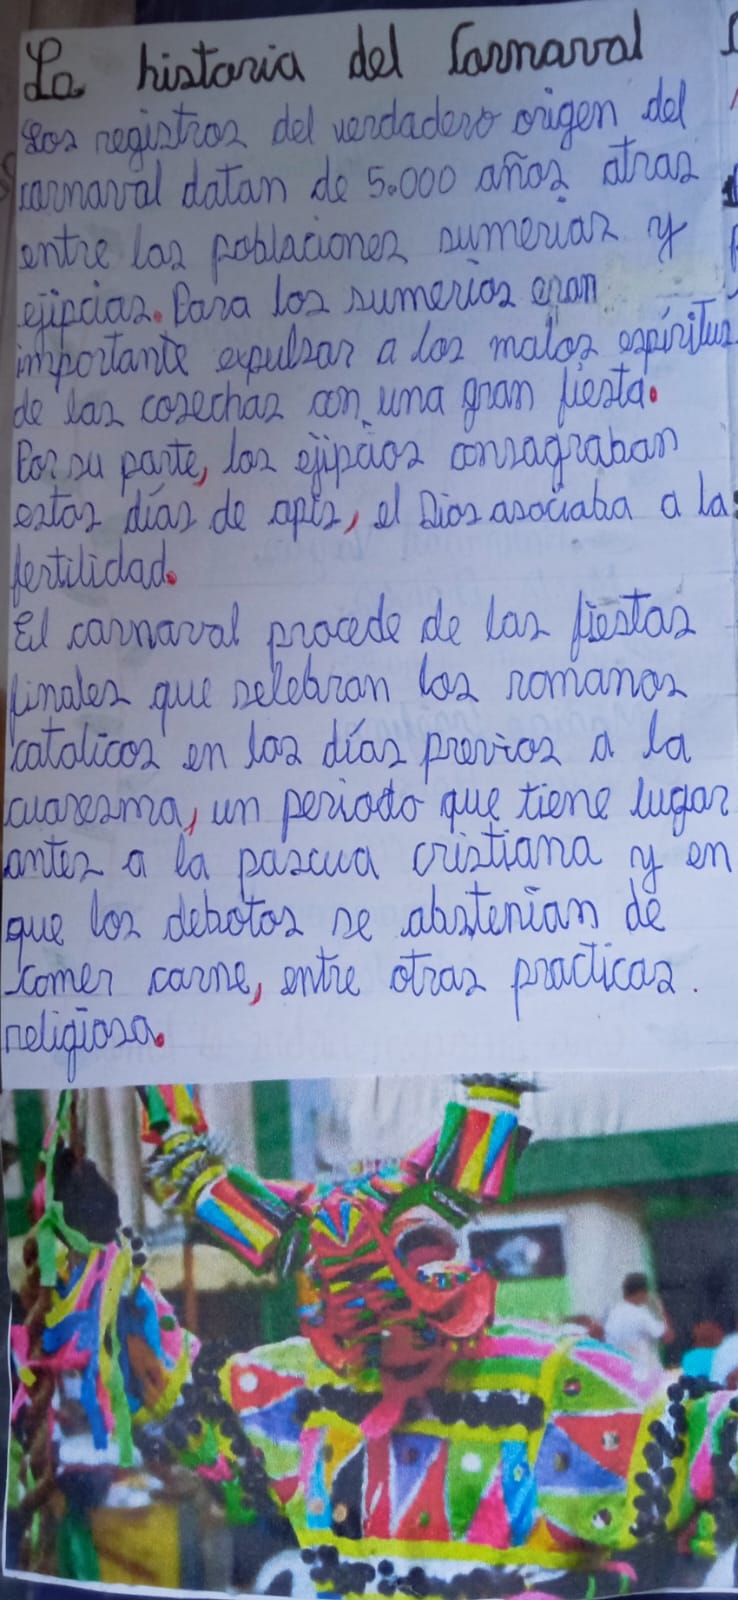 La historia del Carnaval
Los registros del verdadero origen del
carnaval datan de 5.000 años atras
entre las poblaciones sumerias y
ejipcias. Para los sumerios eran
importante expulsar a los malos espíritus
de las cosechas con una gran fiesta.
Por su parte, los ejipcios consagraban
estos días de apis, el Dios asociaba a la
fertilidad.
El carnaval procede de las fiestas
finales que selebran los romanos
catolicos en los días previos a la
cuaresma, un periodo que tiene lugar
antes a la pascua cristiana y en
que los debotos se abstenían de
comer carne, entre otras practicas.
religiosa.